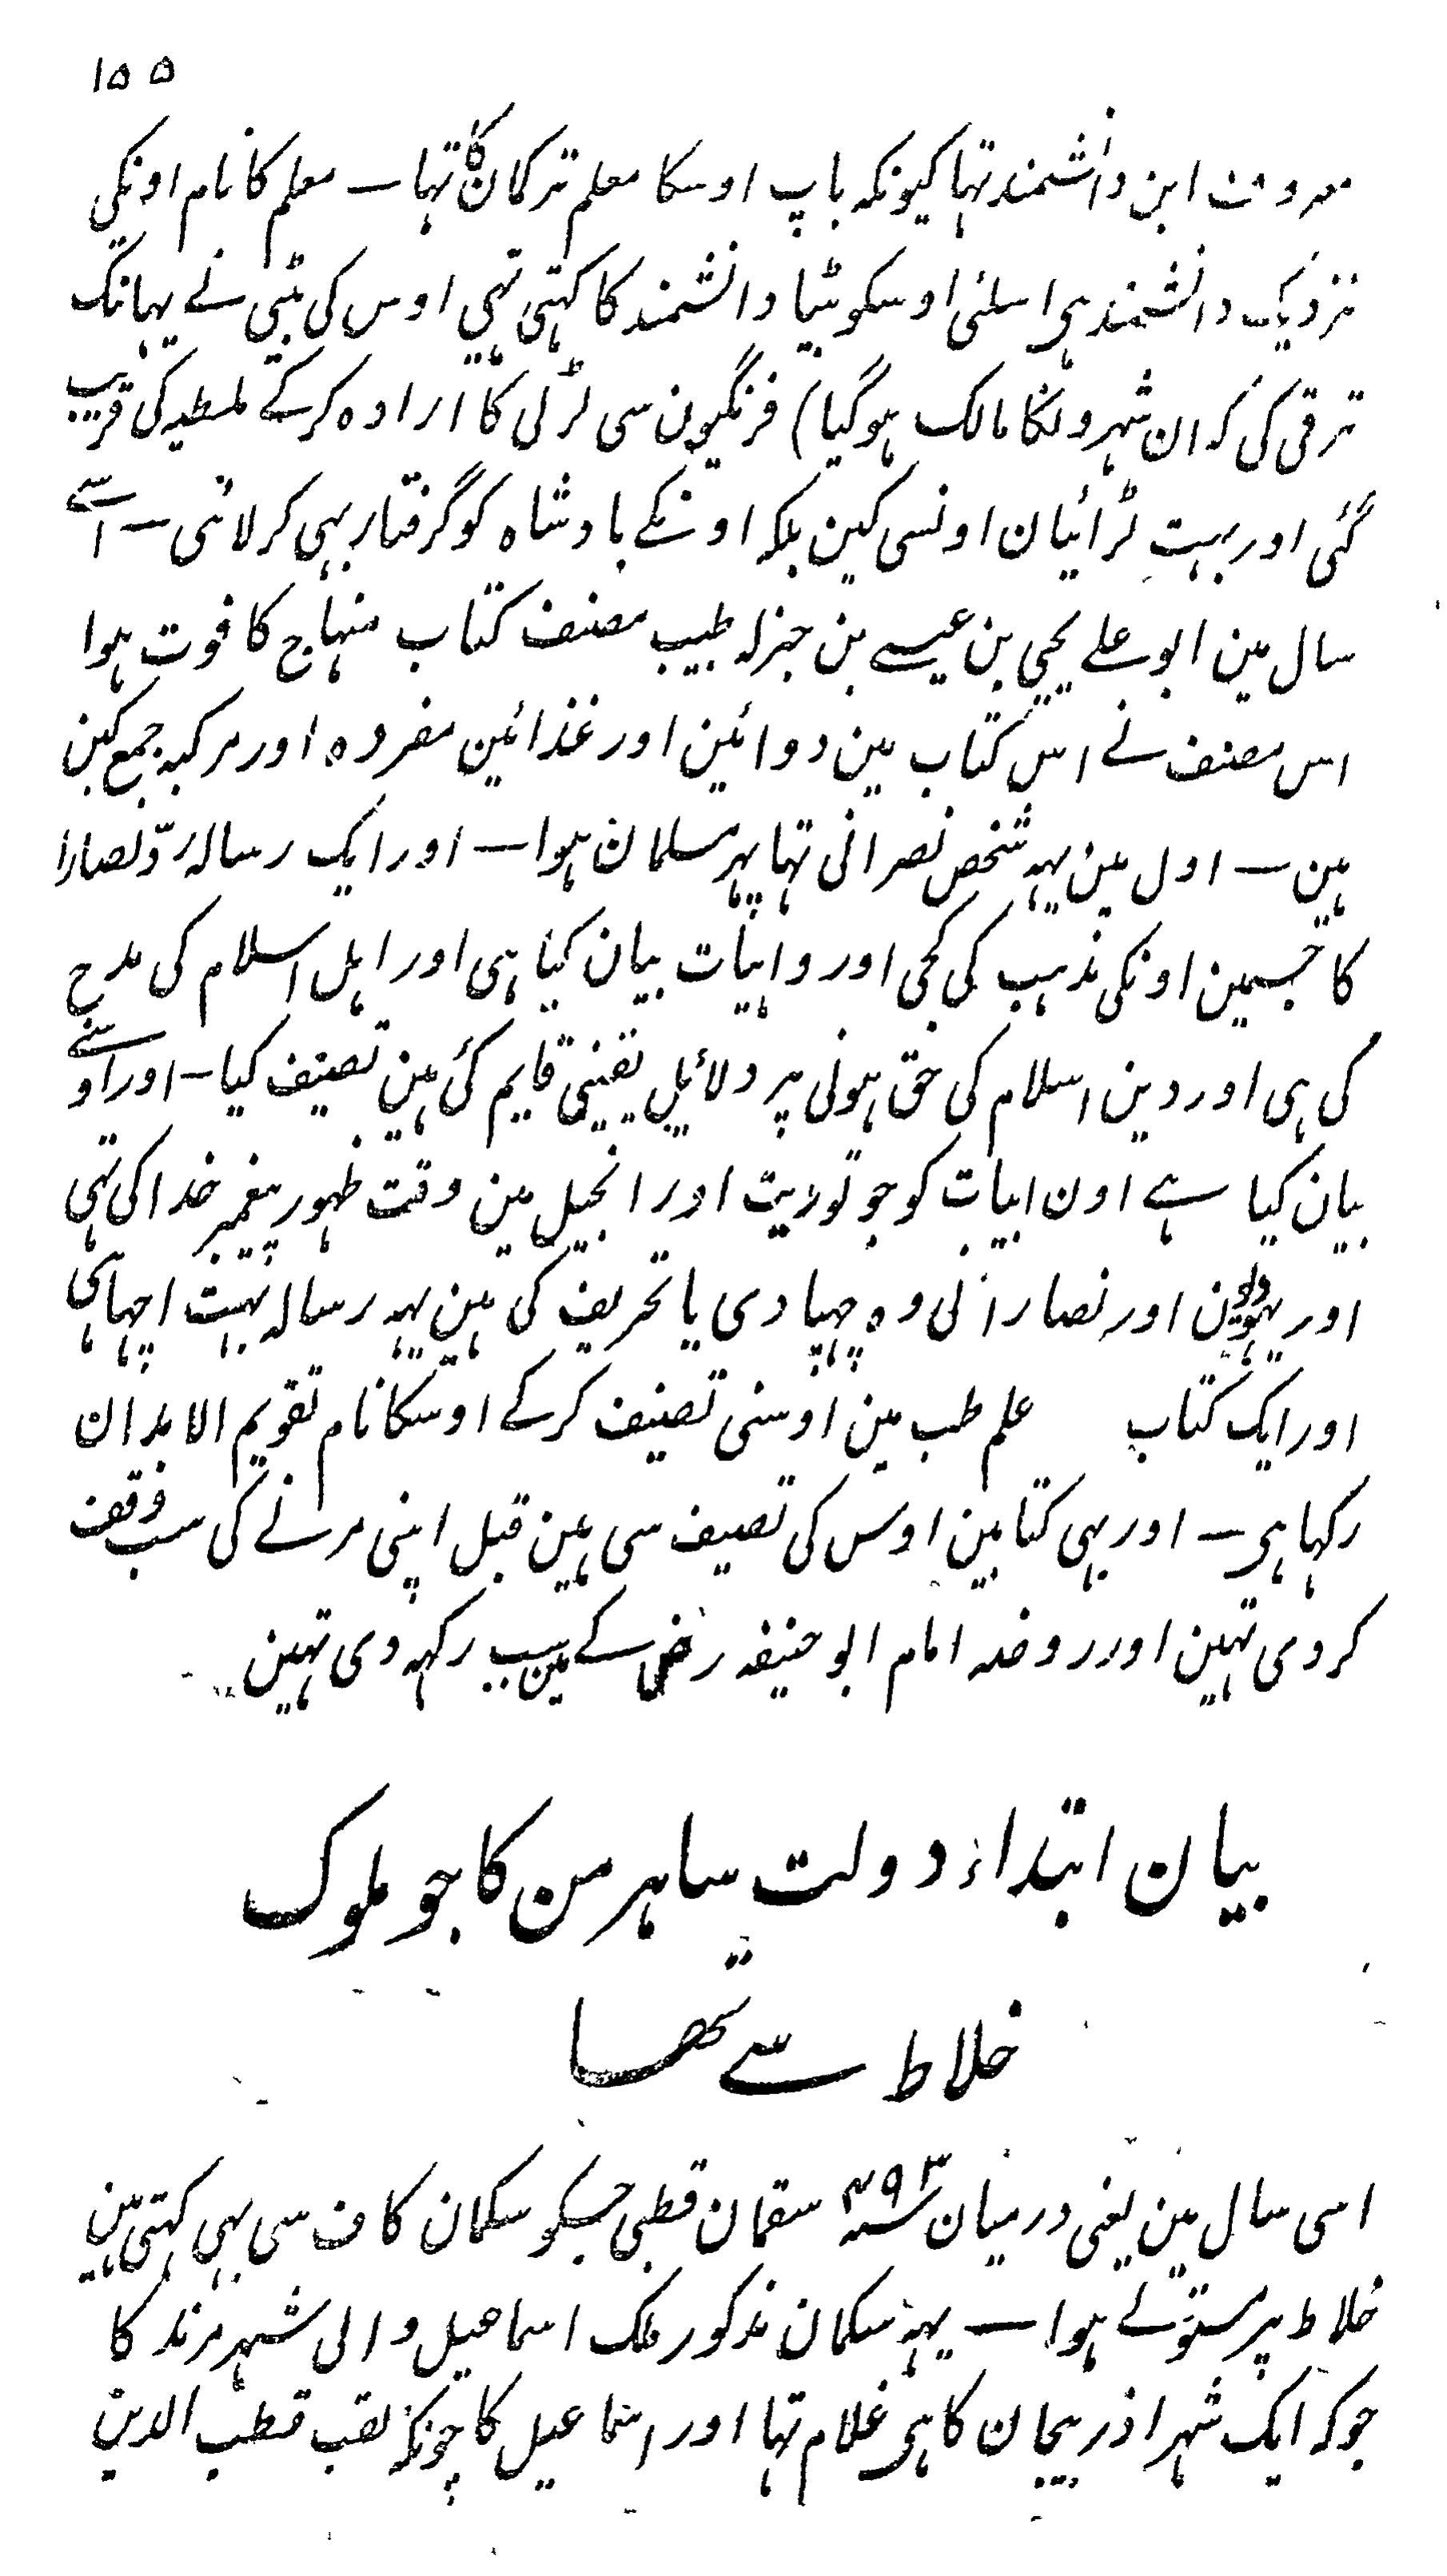 ۱۵۵
معروف ابن دانشمند تہا کیونکہ باپ اوسکا معلم ترکمان کا تہا ـــ معلم کا نام اونکی
نزدیک دانشمند ہی اسلئی اوسکو بیٹا دانشمند کا کہتی تہی اوس کی بیٹی نے یہانتک
ترقی کی کہ ان شہرونکا مالک ہوگیا) فرنگیون سی لڑلی کا ارادہ کرکے ملطیہ کی قریب
گئی اور بہت لڑائیان اونسی کین بلکہ اونکے بادشاہ کو گرفتار بہی کر لائی ـــ اسے
سال مین ابو علے یحیی بن عیسے بن جزلہ طبیب مصنف کتاب منہاج کا فوت ہوا
اس مصنف نے اس کتاب مین دوائین اور غذائین مفردہ اور مرکبہ جمع کین
ہین ـــ اول مین یہہ شخص نصرانی تہا پہر مسلمان ہوا ـــ اور ایک رسالہ ردّ نصارا
کا جسمین اونکی مذہب کی کجی اور واہیات بیان کیا ہی اور اہل اسلام کی مدح
کی ہی اور دین اسلام کی حق ہونی پر دلائیل یقینی قایم کئی ہین تصنیف کیا ـــ اور اوسنے
بیان کیا ہے اون ابیات کو جو توریت اور انجیل مین وقت ظہور پیغمبر خدا کی تہی
اور یہودیون اور نصارا نی وہ چہپا دی یا تحریف کی ہین یہہ رسالہ بہت اچہا ہی
اور ایک کتاب علم طب مین اوسنی تصنیف کرکے اوسکا نام تقویم الابدان
رکہا ہی ـــ اور بہی کتابین اوس کی تصیف سی ہین قبل اپنی مرنے کی سب وقف
کردی تہین اور روضہ امام ابو حنیفہ رضی کے مین سب رکہہ دی تہین
بیان ابتداء دولت ساہرمن کا جو ملوک
خلاط سے تھا
اسی سال مین یعنی درمیان سنہ ۴۹۳ سقمان قطبی جسکو سکمان کاف سی بہی کہتی ہین
خلاط پر مستولے ہوا ـــ یہہ سکمان مذکور ملک اسماعیل والی شہر مرند کا
جو کہ ایک شہر اذربیجان کا ہی غلام تہا اور اسماعیل کا چونکہ لقب قطب الدین